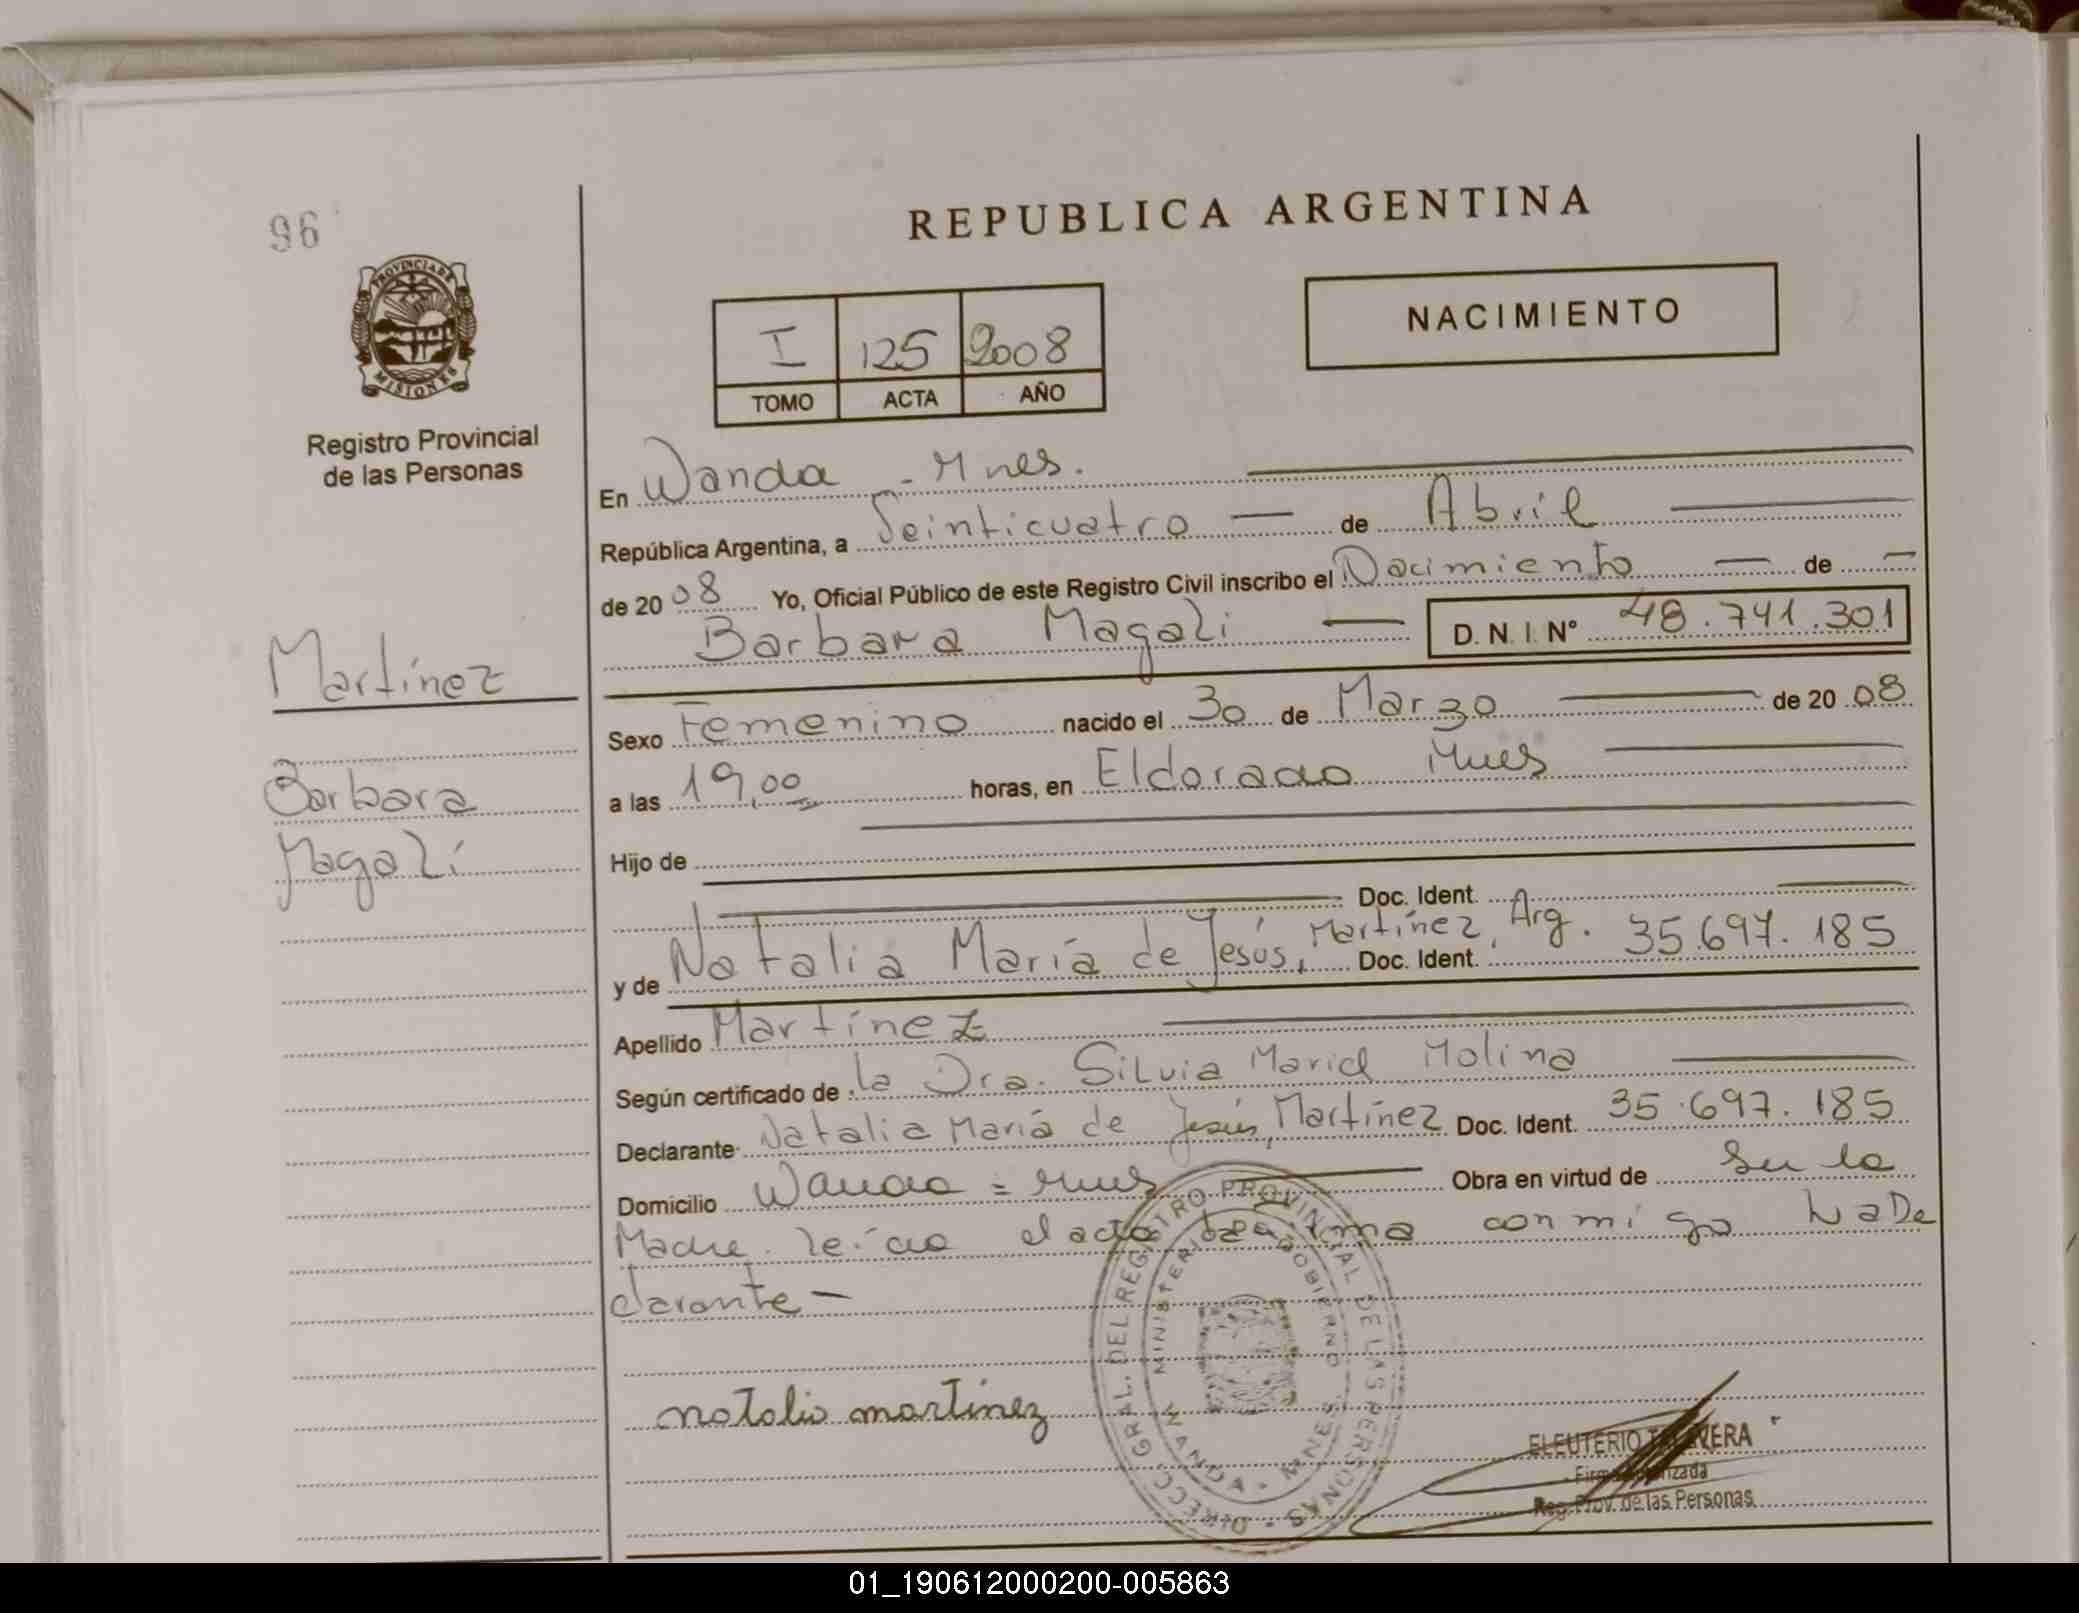 96
REPUBLICA ARGENTINA
PROVINCIA DE
MISIONES
Registro Provincial
de las Personas
NACIMIENTO
I 125 2008
TOMO ACTA AÑO
Martínez
Barbara
Magalí
En Wanda - Mnes.
República Argentina, a Veinticuatro — de Abril
de 2008 Yo, Oficial Público de este Registro Civil inscribo el Nacimiento — de —
Barbara Magali — D. N. I. Nº 48.741.301
Sexo Femenino nacido el 30 de Marzo de 2008
a las 19,00 horas, en Eldorado Mnes
Hijo de
Doc. Ident.
y de Natalia María de Jesús, Martínez, Arg. Doc. Ident. 35.697.185
Apellido Martínez
Según certificado de la Dra. Silvia Mariel Molina
Declarante Natalia María de Jesús, Martínez Doc. Ident. 35.697.185
Domicilio Wanda = Mnes Obra en virtud de Ser la
Madre. leída el acta la firma conmigo La De
clarante —
natalia martínez
DIRECC. GRAL. DEL REGISTRO PROVINCIAL DE LAS PERSONAS
MINISTERIO GOBIERNO
WANDA - MNES
ELEUTERIO
Reg. Prov. de las Personas
01_190612000200-005863